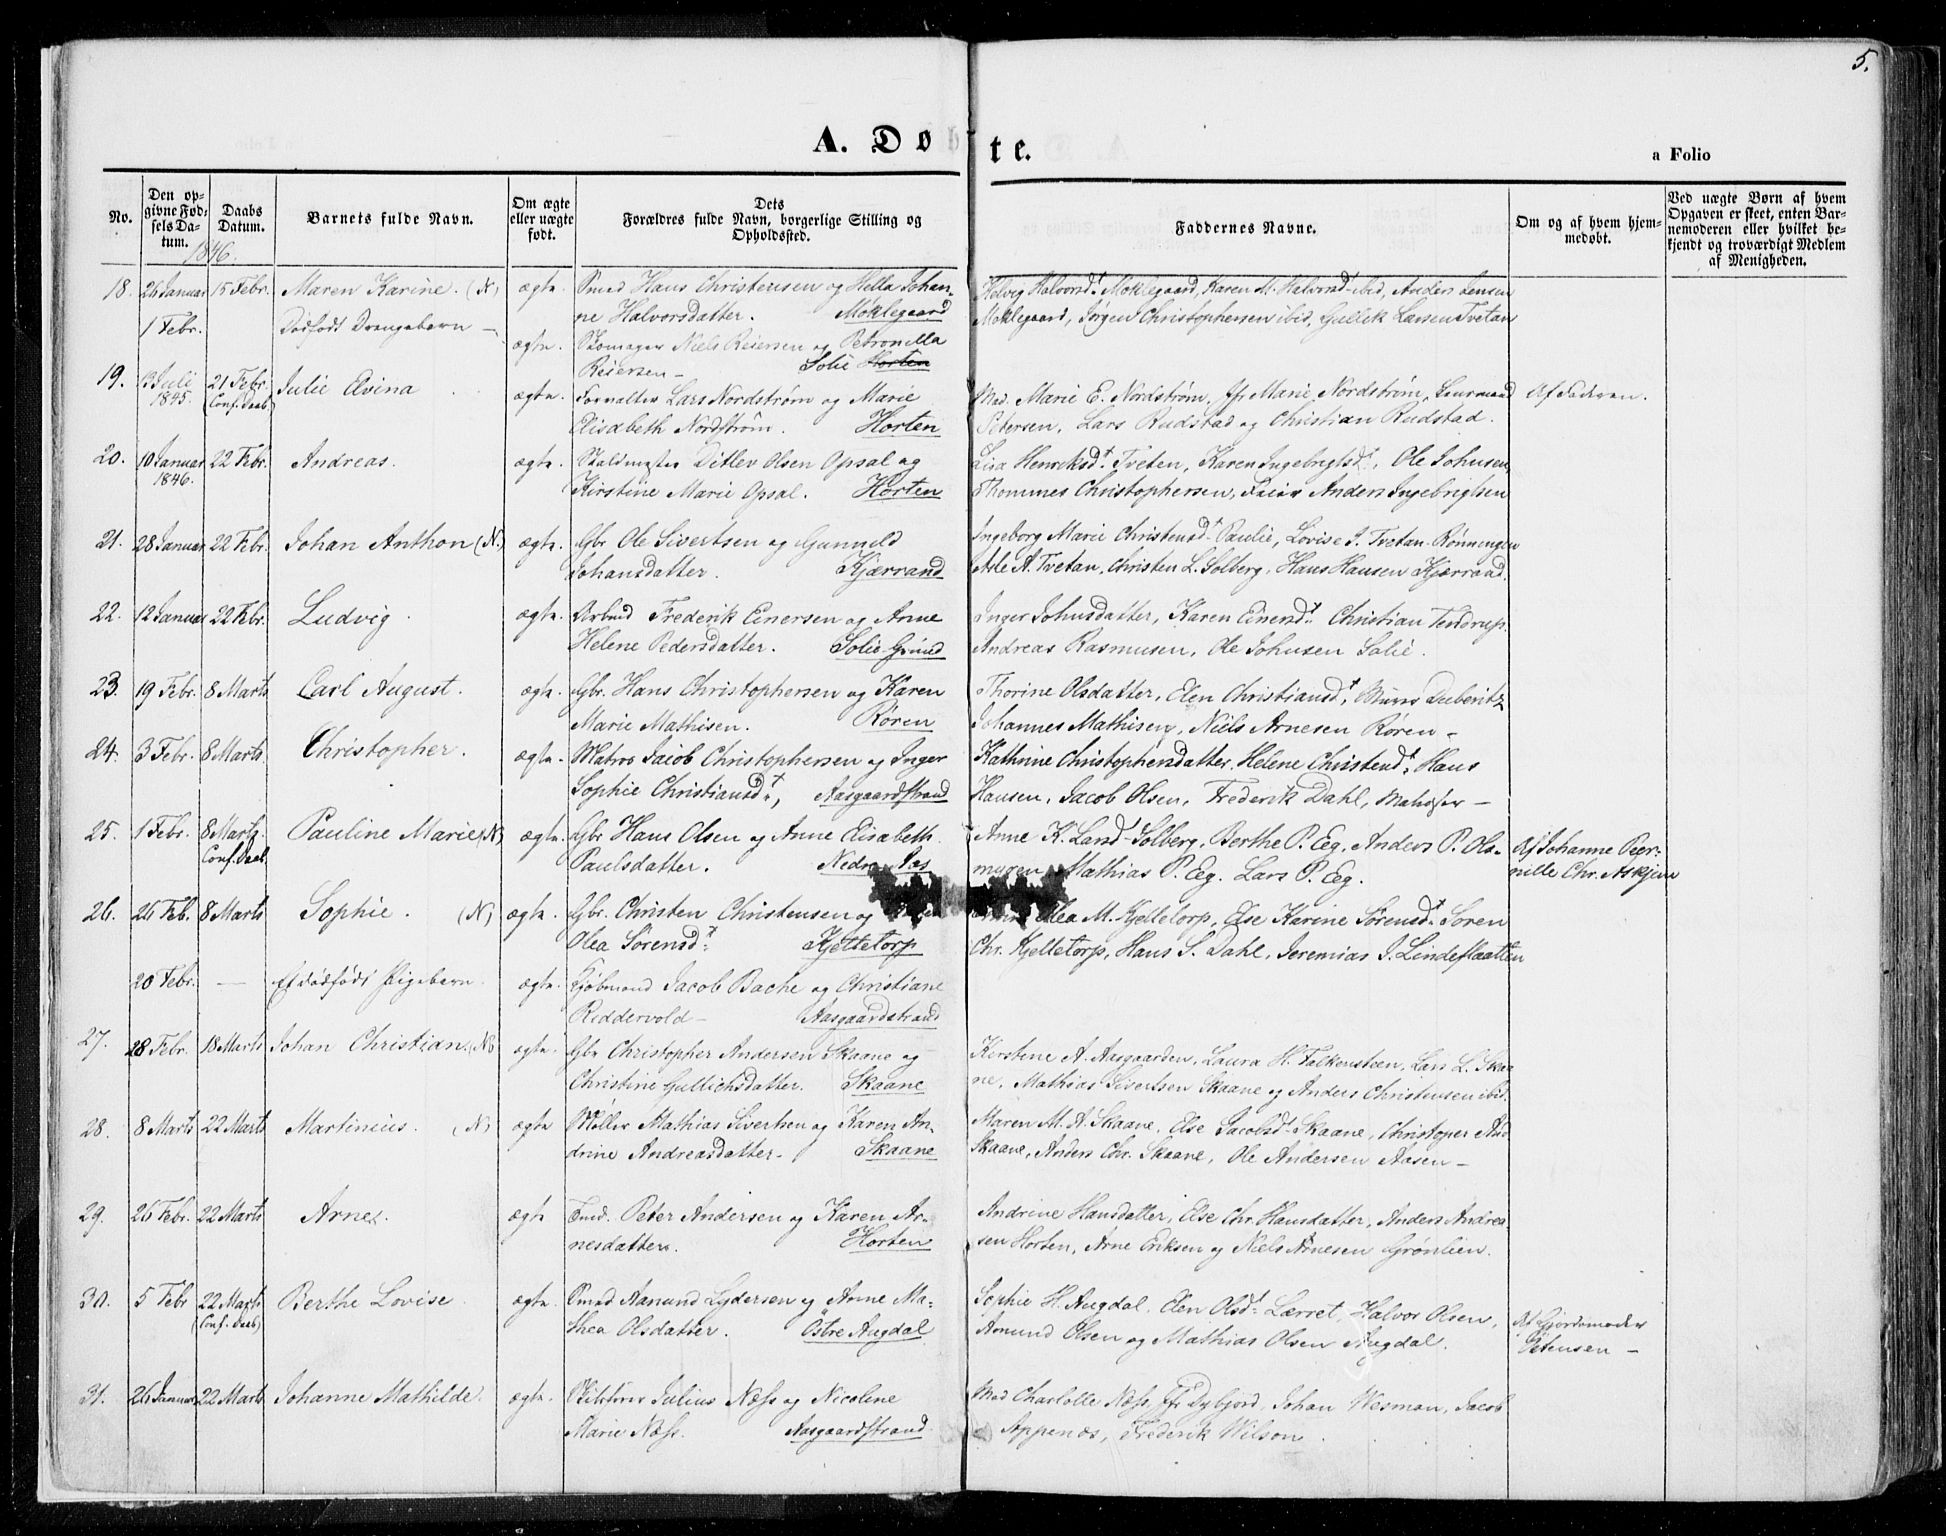 5.
A. Døbte.
a Folio
No.
Den opgivne Fødsels Datum.
Daabs Datum.
Barnets fulde Navn.
Om ægte eller uægte født.
Dets Forældres fulde Navn, borgerlige Stilling og Opholdssted.
Faddernes Navne.
Om og af hvem hjemmedøbt.
Ved uægte Børn af hvem Opgaven er skeet, enten Barnemoderen eller hvilket bekjendt og troværdigt Medlem af Menigheden.
1846.
18. 26 Januar 15 Febr. Maren Karine. (N) ægte. Smed Hans Christensen og Hella Johan- Helvig Halvorsd. Moklegaard, Karen M. Halvorsd. ibid, Anders Jensen
ne Halvorsdatter. Moklegaard Moklegaard, Jørgen Christophersen ibid, Gullik Larsen Tvetan
1 Febr. Dødfødt Drengebarn – ægte. Skomager Niels Reiersen og Petronella
Reiersen – Solie Horten
19. 13 Juli 1845. 21 Febr. (Conf. Daab) Julie Elvina ægte. Forvalter Lars Nordstrøm og Marie Mad. Marie E. Nordstrøm, Jfr Marie Nordstrøm, Af Faderen.
Elisabeth Nordstrøm. Horten Petersen, Lars Rudstad og Christian Rudstad.
20. 10 Januar 1846. 22 Febr. Andreas. ægte. Ditlev Olsen Opsal og Lisa Henriksd. Tveten, Karen Ingebrigtsd., Ole Johnsen
Kirstine Marie Opsal. Horten Thommes Christophersen, Anders Ingebrigtsen
21. 28 Januar 22 Febr. Johan Anthon (N.) ægte. Gbr Ole Sivertsen og Gunneld Ingeborg Marie Christensd. Paulie, Lovise J. Tvetan-Rønningen
Johansdatter. Kjærrand Asle A. Tvetan, Christen L. Solberg, Hans Hansen Kjærrand.
22. 12 Januar 22 Febr. Ludvig. ægte. Arbmd Frederik Einersen og Anne Inger Johnsdatter, Karen Einersd. Christian
Helene Pedersdatter. Solie-Grund Andreas Rasmusen, Ole Johnsen Solie.
23. 19 Febr. 8 Marts Carl August. ægte. Gbr. Hans Christophersen og Karen Thorine Olsdatter, Elen Christiansd.,
Marie Mathisen. Røren Johannes Mathisen, Niels Arnesen Røren –
24. 3 Febr. 8 Marts Christopher. ægte. Matros Jacob Christophersen og Inger Kathrine Christophersdatter. Helene Christensd. Hans
Sophie Christiansd., Aasgaardstrand Hansen, Jacob Olsen, Frederik Dahl, Matroser –
25. 1 Febr. 8 Marts. Conf. Daab. Pauline Marie (N) ægte. Gbr Hans Olsen og Anne Elisabeth Anne K. Larsd. Solberg, Berthe P. Eeg, Anders P. Ols- Af Johanne Peer-
Paulsdatter. Nedre Aas mygen Mathias P. Eeg. Lars P. Eeg. nille Chr. Askjem
26. 26 Feb. 8 Marts Sophie. (N) ægte. Gbr. Christen Christensen og Olea M. Kjelletorp, Else Karine Sørensd. Søren
Olea Sørensd. Kjelletorp Chr. Kjelletorp, Hans S. Dahl, Jeremias J. Lindeflaatten
20 Febr. – Et dødfødt Pigebarn ægte. Kjøbmand Jacob Bache og Christiane
Riddervold – Aasgaardstrand
27. 28 Febr. 18 Marts Johan Christian. (N) ægte. Gbr Christopher Andersen Skaane og Kirstene A. Aasgaarden, Laura H. Falkensteen, Lars L. Skaa
Christine Gullichsdatter. Skaane ne, Mathias Sivertsen Skaane og Anders Christensen ibid.
28. 8 Marts 22 Marts Martinius. (N) ægte Møller Mathias Sivertsen og Karen An- Maren M. A. Skaane, Else Jacobsd. Skaane, Christoper And
drine Andreasdatter – Skaane Skaane, Anders Chr. Skaane, Ole Andersen Aasen –
29. 26 Febr. 22 Marts Arne. ægte Peter Andersen og Karen Ar- Andrine Hansdatter, Else Chr. Hansdatter, Anders Andrea
nesdatter. Horten sen Horten, Arne Eriksen og Niels Arnesen Grønlien.
30. 5 Febr 22 Marts (Conf. Daab) Berthe Lovise. ægte. Smed Aanund Lydersen og Anne Ma- Sophie H. Augdal, Elen Olsd. Lærret, Halvor Olsen, Af Gjordemoder
thea Olsdatter. Østre Augdal Amund Olsen og Mathias Olsen Augdal. Petersen –
31. 26 Januar 22 Marts Johanne Mathilde. ægte. Skibsfører Julius Næss og Nicoline Mad Charlotte Næss, Jfr Dybjord, Johan Wesman, Jacob
Marie Næss. Aasgaardstrand Appenæs, Frederik Wilson.